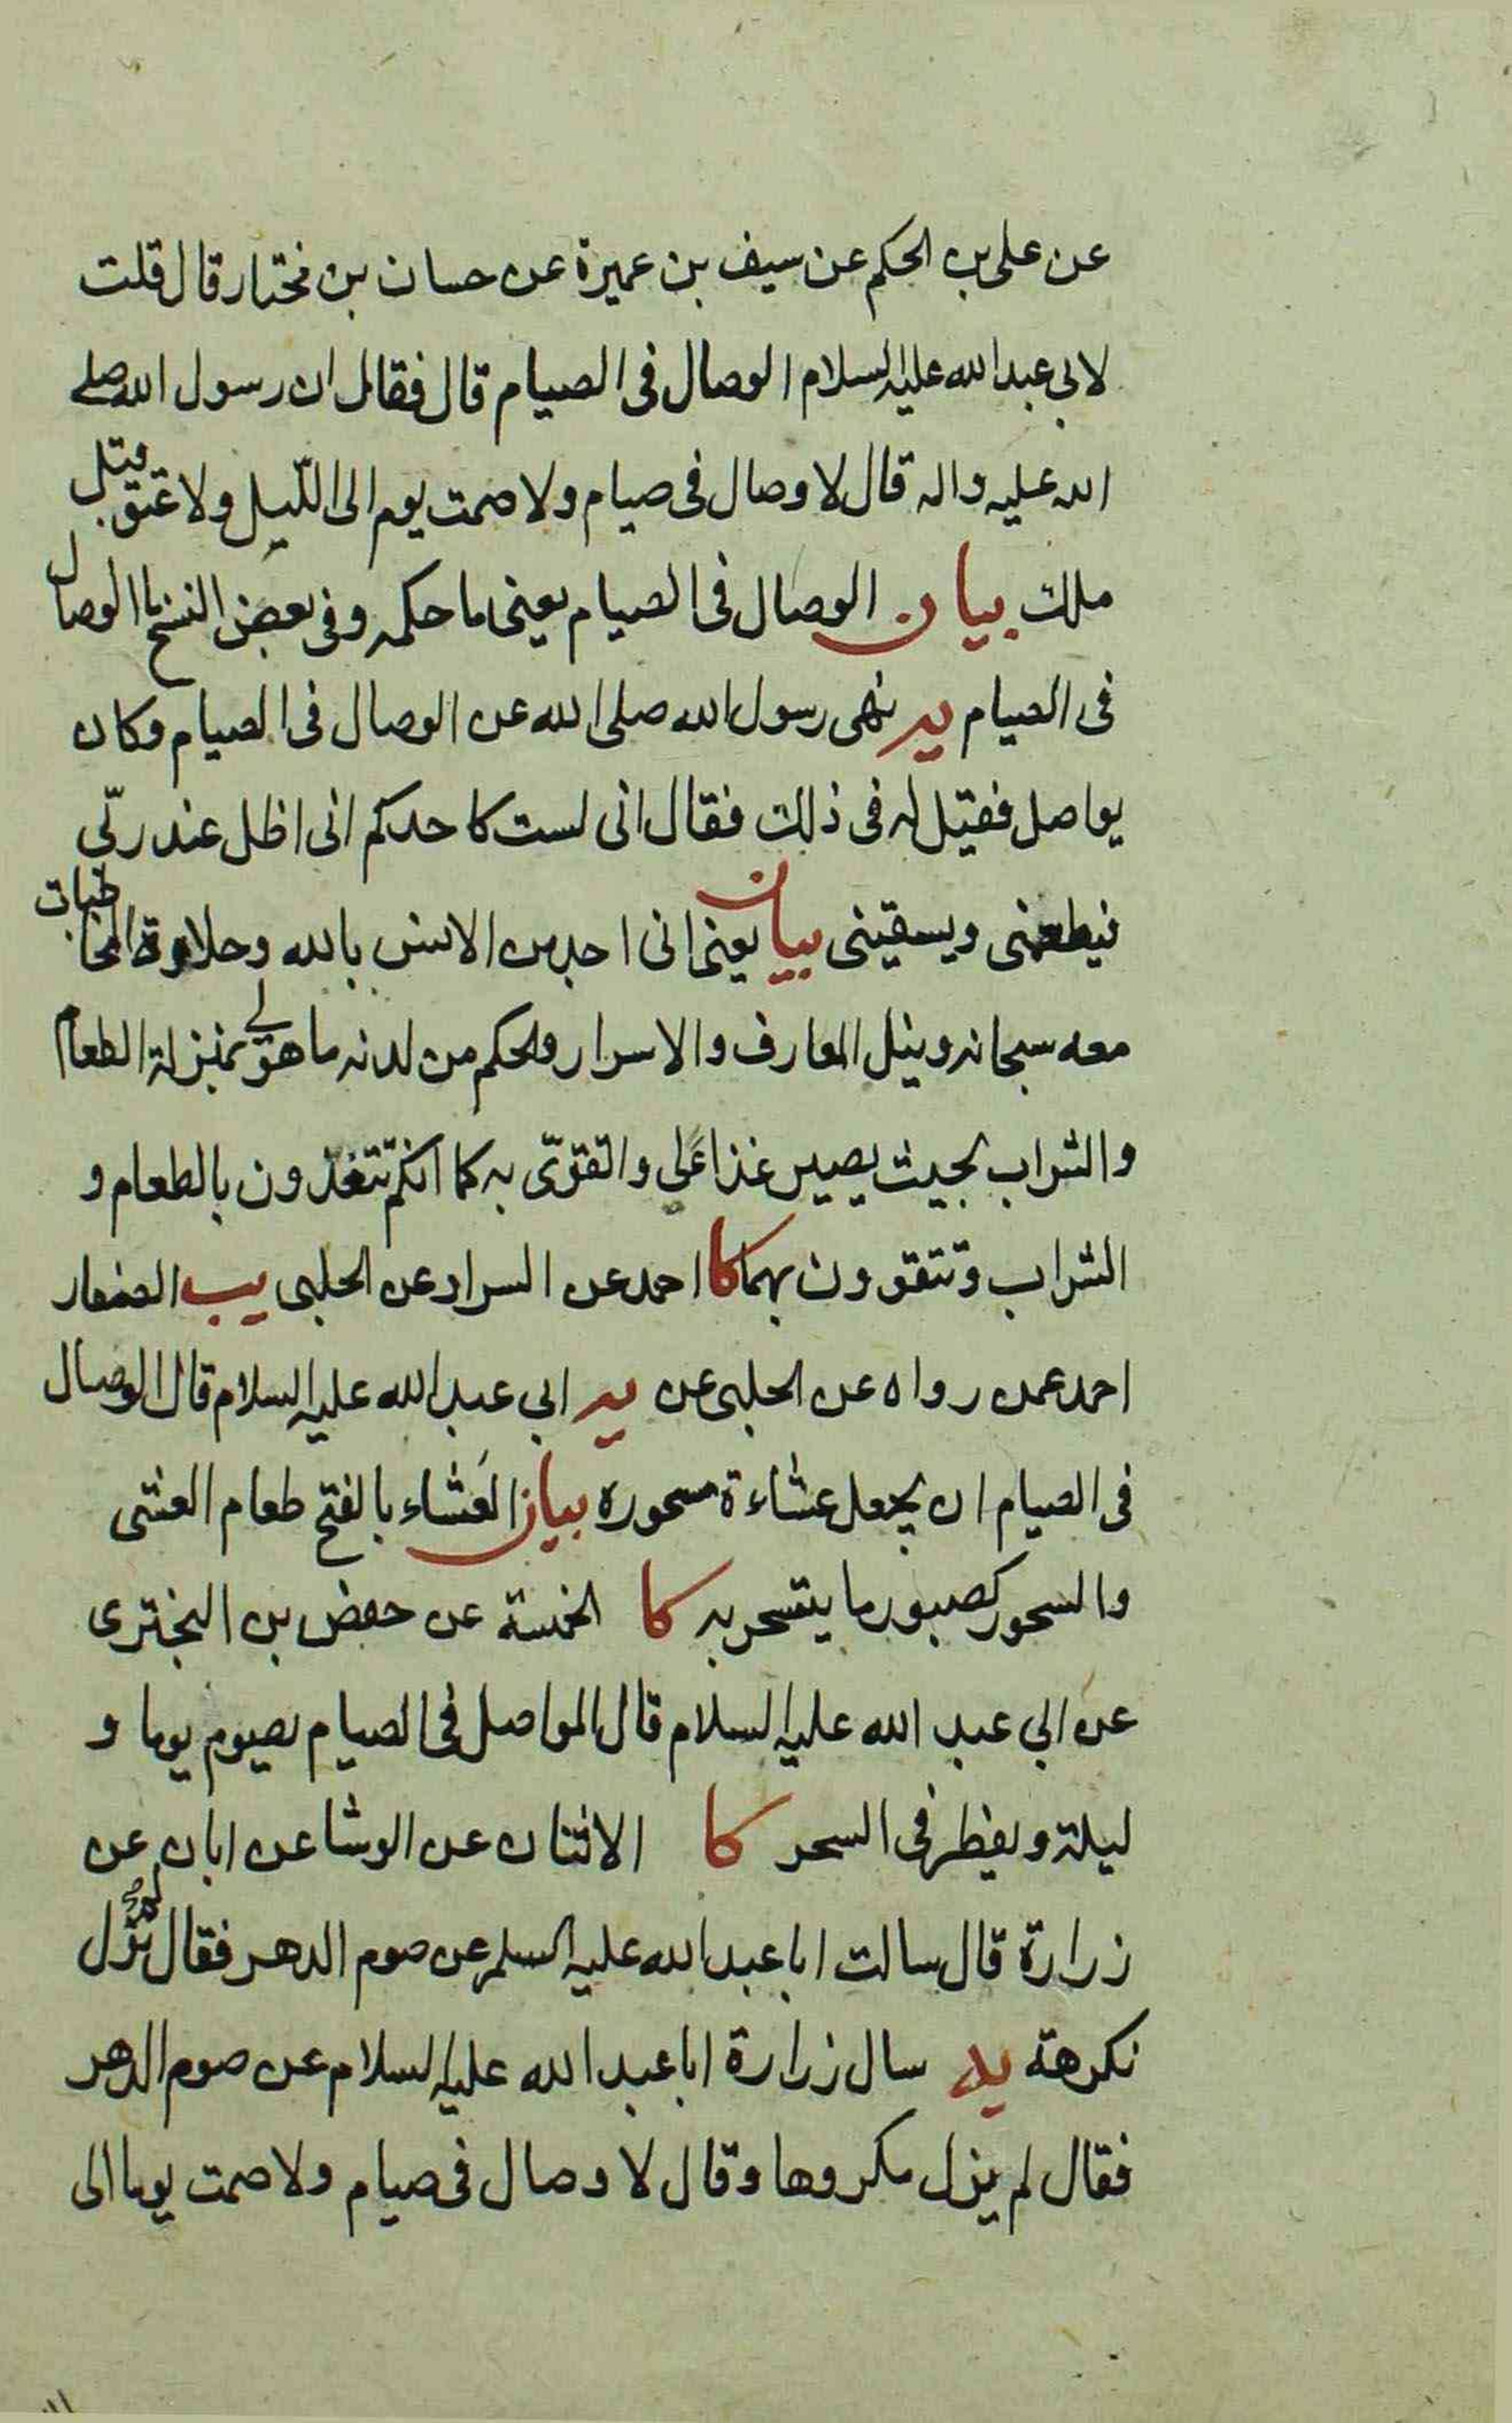 عن على بن الحكم عن سيف بن عميرة عن حسان بن مختار قال قلت
لابى عبد الله عليه السلام الوصال فى الصيام قال فقال ان رسول الله صلى
الله عليه واله قال لا وصال فى صيام ولا صمت يوم الى اللّيل ولا عتق قبل
ملك بيان الوصال فى الصيام يعنى ما حكمه وفى بعض النسخ ما الوصال
فى الصيام يه نهى رسول الله صلى الله عن الوصال فى الصيام وكان
يواصل فقيل له فى ذلك فقال انى لست كاحدكم انى اظل عند ربّى
فيطعمنى ويسقينى بيان يعنى انى اجد من الانس بالله وحلاوة المخاطبات
معه سبحانه ونيل المعارف والاسرار والحكم من لدنه ما هو لى بمنزلة الطعام
والشراب بحيث يصير غذاء لى واتقوّى به كما انكم تتغذّون بالطعام و
الشراب وتتقوون بهما كا احمد عن السراد عن الحلبى يب الصفار
احمد عمن رواه عن الحلبى عن يه ابى عبد الله عليه السلام قال الوصال
فى الصيام ان يجعل عشاءة سحوره بيان العَشاء بالفتح طعام العشى
والسحور كصبور ما يتسحر به كا الخمسة عن حفص بن البخترى
عن ابى عبد الله عليه السلام قال المواصل فى الصيام يصوم يوما و
ليلة ويفطر فى السحر كا الاثنان عن الوشا عن ابان عن
زرارة قال سالت ابا عبد الله عليه السلم عن صوم الدهر فقال لم نزل
نكرهه يه سال زرارة ابا عبد الله عليه السلام عن صوم الدهر
فقال لم يزل مكروها وقال لا وصال فى صيام ولا صمت يوما الى